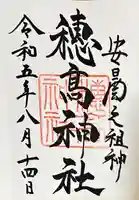 安曇之祖神
穂髙神社
令和五年八月十四日